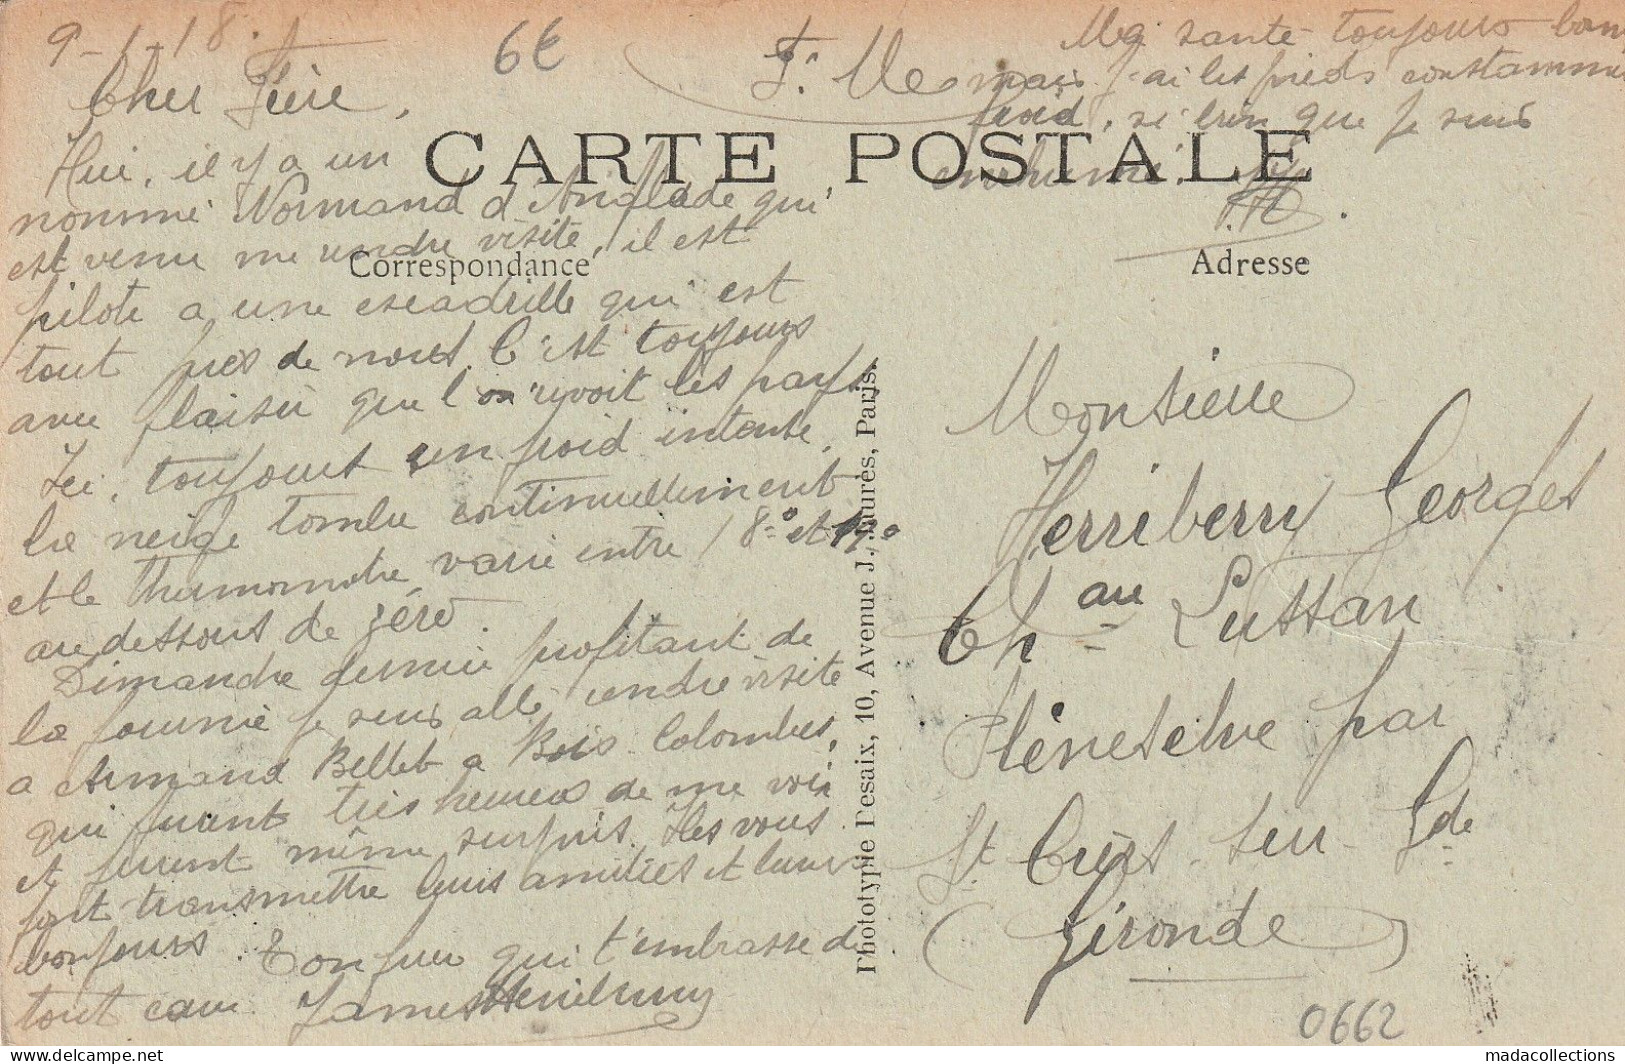 9-1-18.
6€
Cher Frère,
CARTE POSTALE
Hui, il y a un
nommé Normand d'Anglade qui
est venu me rendre visite, il est
Correspondance
pilote a une escadrille qui est
tout près de nous. C'est toujours
avec plaisir que l'on revoit les pays.
Ici, toujours un froid intense,
la neige tombe continuellement
et le thermomètre varie entre 18° et 19°
au dessous de zéro.
Dimanche dernier profitant de
la journée je suis allé rendre visite
a Armand Bellet a Bois-Colombes,
qui furent très heureux de me voir
et furent même surpris. Ils vous
font transmettre leurs amitiés et leurs
bonjours. Ton frère qui t'embrasse de
tout cœur. James Herriberry
T.
Ma santé toujours bonne
mais j'ai les pieds constamment
froid, si bien que je suis
enrhumé.
J.H.
Adresse
Monsieur
Herriberry Georges
Ch au Lussan
Pleneselve par
St. Ciers-sur-Gde
(Gironde)
Phototypie Desaix, 10, Avenue J. Jaurès, Paris.
0662
delcampe.net
madacollections